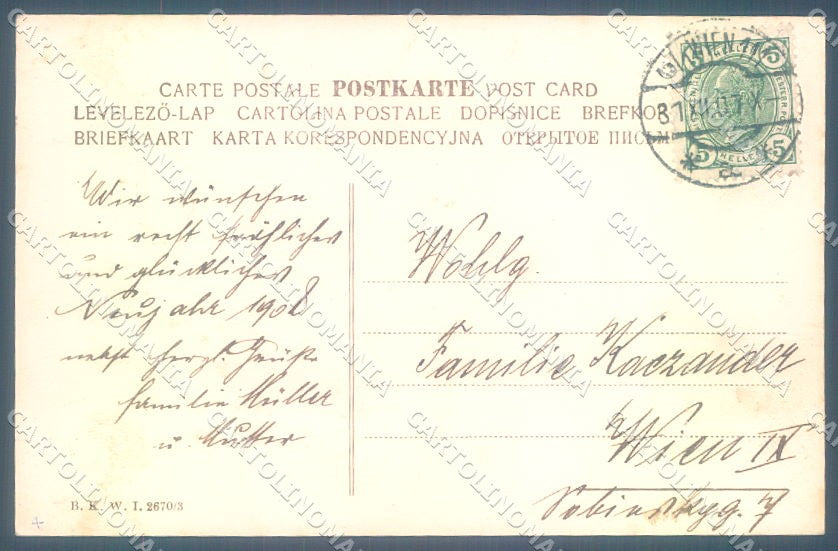 CARTE POSTALE POSTKARTE POST CARD
LEVELEZŐ-LAP CARTOLINA POSTALE DOPISNICE BREFKO
BRIEFKAART KARTA KORESPONDENCYJNA ОТКРЫТОЕ ПИСЬМ
WIEN
5 HELLER 5
Wir wünschen
ein recht fröhliches
und glückliches
Neujahr 1908
nebst herzl. Grüße
Familie Müller
u. Mutter
Wohlg.
Familie Kaczander
Wien IX
Sobieskyg. 7
B. K. W. I. 2670/3
CARTOLINOMANIA